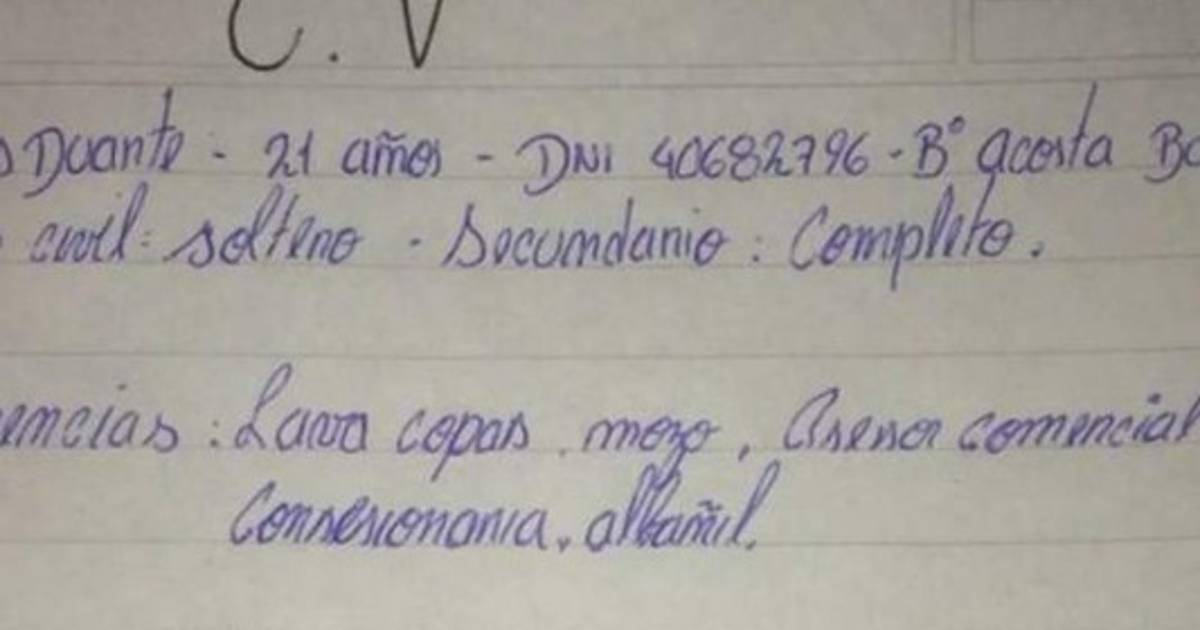 C. V
Duarte - 21 años - DNI 40682796 - B° acosta
civil: soltero - Secundario: Completo.
encias: Lava copas, mozo, Asesor comercial
Consesionaria, albañil.